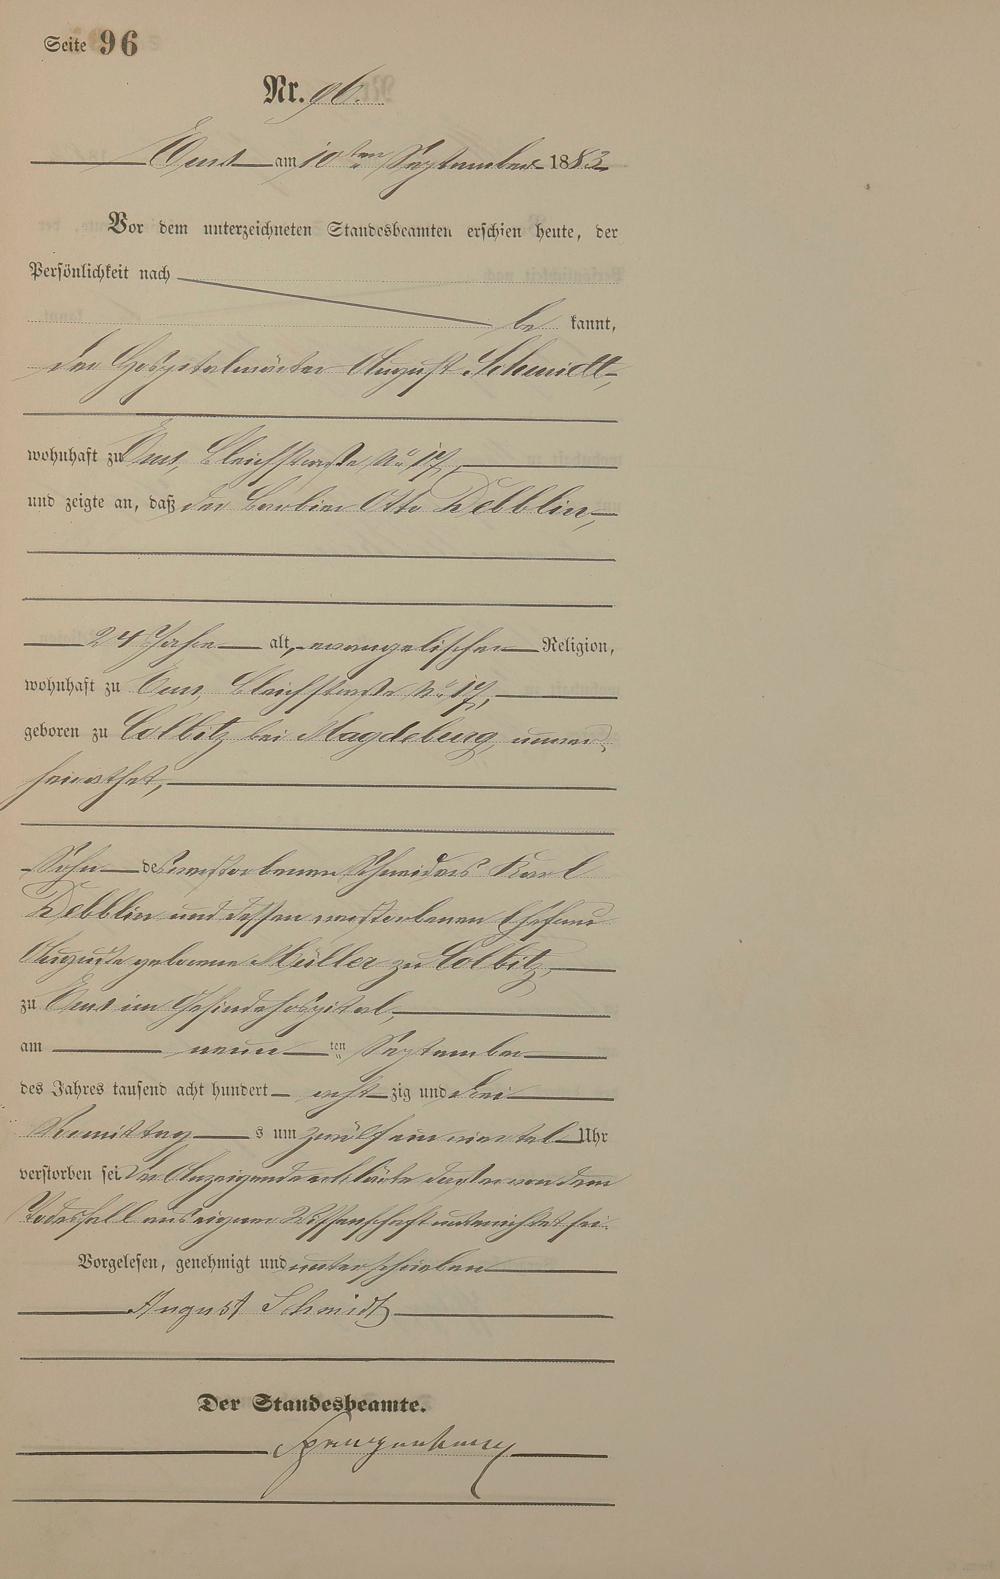 Seite 96
Nr. 96.
Ems am 10ten September 1883
Vor dem unterzeichneten Standesbeamten erschien heute, der
Persönlichkeit nach
be kannt,
der Hospitalwärter August Schmidt,
wohnhaft zu Ems, Bleichstraße No 17,
und zeigte an, daß der Barbier Otto Debblin,
24 Jahre alt, evangelischer Religion,
wohnhaft zu Ems, Bleichstraße No 17,
geboren zu Colbitz bei Magdeburg, unver
heirathet,
Sohn des verstorbenen Schneiders Karl
Debblin und dessen verstorbenen Ehefrau
Auguste geborene Müller zu Colbitz,
zu Ems im Gesindehospital,
am neun ten September
des Jahres tausend acht hundert acht zig und drei
Vormittag s um zwölf ein viertel Uhr
verstorben sei. Der Anzeigende erklärte daß er von dem
Todesfall aus eigener Wissenschaft unterrichtet sei.
Vorgelesen, genehmigt und unterschrieben
August Schmidt
Der Standesbeamte.